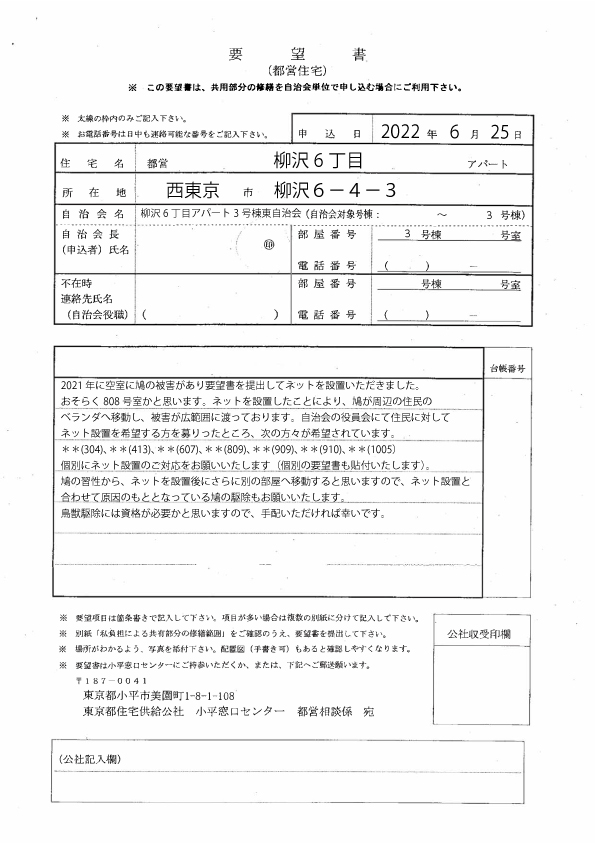 要望書
（都営住宅）
※ この要望書は、共用部分の修繕を自治会単位で申し込む場合にご利用下さい。
※ 太線の枠内のみご記入下さい。
※ お電話番号は日中も連絡可能な番号をご記入下さい。
申込日 2022 年 6 月 25 日
住宅名 都営 柳沢６丁目 アパート
所在地 西東京 市 柳沢６－４－３
自治会名 柳沢６丁目アパート３号棟東自治会（自治会対象号棟： ～ 3 号棟）
自治会長
（申込者）氏名 ㊞
部屋番号 3 号棟 号室
電話番号 （ ） －
不在時
連絡先氏名
（自治会役職） （ ）
部屋番号 号棟 号室
電話番号 （ ） －
台帳番号
2021年に空室に鳩の被害があり要望書を提出してネットを設置いただきました。
おそらく808号室かと思います。ネットを設置したことにより、鳩が周辺の住民の
ベランダへ移動し、被害が広範囲に渡っております。自治会の役員会にて住民に対して
ネット設置を希望する方を募りったところ、次の方々が希望されています。
＊＊(304)、＊＊(413)、＊＊(607)、＊＊(809)、＊＊(909)、＊＊(910)、＊＊(1005)
個別にネット設置のご対応をお願いいたします（個別の要望書も貼付いたします）。
鳩の習性から、ネットを設置後にさらに別の部屋へ移動すると思いますので、ネット設置と
合わせて原因のもととなっている鳩の駆除もお願いいたします。
鳥獣駆除には資格が必要かと思いますので、手配いただければ幸いです。
※ 要望項目は箇条書きで記入して下さい。項目が多い場合は複数の別紙に分けて記入して下さい。
※ 別紙「私負担による共有部分の修繕範囲」をご確認のうえ、要望書を提出して下さい。
※ 場所がわかるよう、写真を添付下さい。配置図（手書き可）もあると確認しやすくなります。
※ 要望書は小平窓口センターにご持参いただくか、または、下記へご郵送願います。
〒187－0041
東京都小平市美園町1-8-1-108
東京都住宅供給公社 小平窓口センター 都営相談係 宛
公社収受印欄
（公社記入欄）